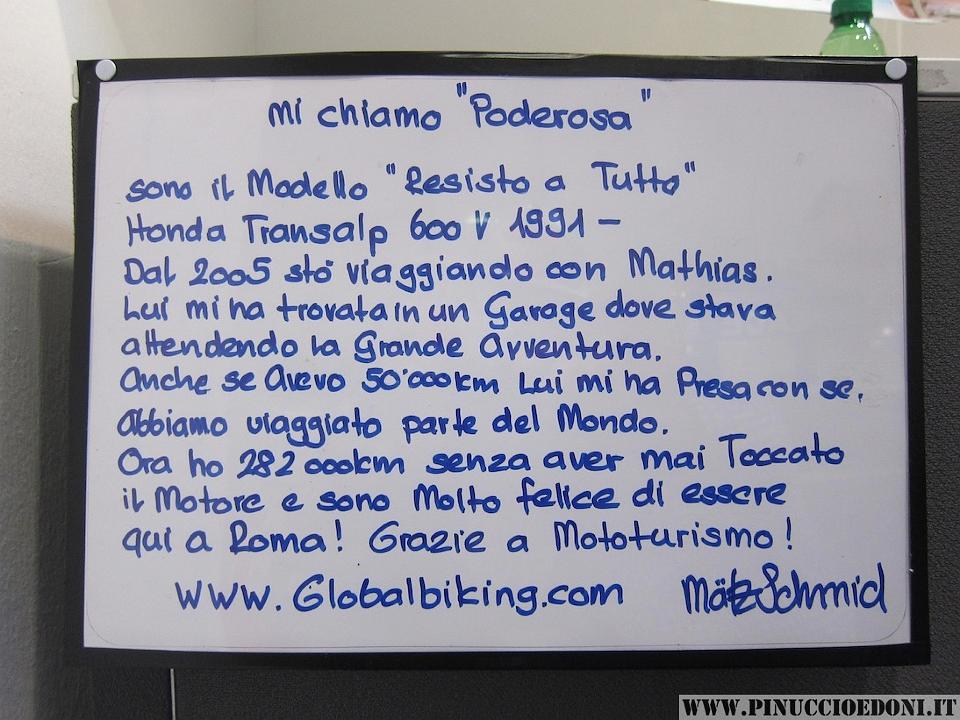 mi chiamo "Poderosa"
sono il Modello "Resisto a Tutto"
Honda Transalp 600 V 1991 -
Dal 2005 stò viaggiando con Mathias.
Lui mi ha trovata in un Garage dove stava
attendendo la Grande Avventura.
Anche se Avevo 50'000km Lui mi ha Presa con se.
Abbiamo viaggiato parte del Mondo.
Ora ho 282 000km senza aver mai Toccato
il Motore e sono Molto felice di essere
qui a Roma! Grazie a Mototurismo!
www.Globalbiking.com Mätz Schmid
WWW.PINUCCIOEDONI.IT